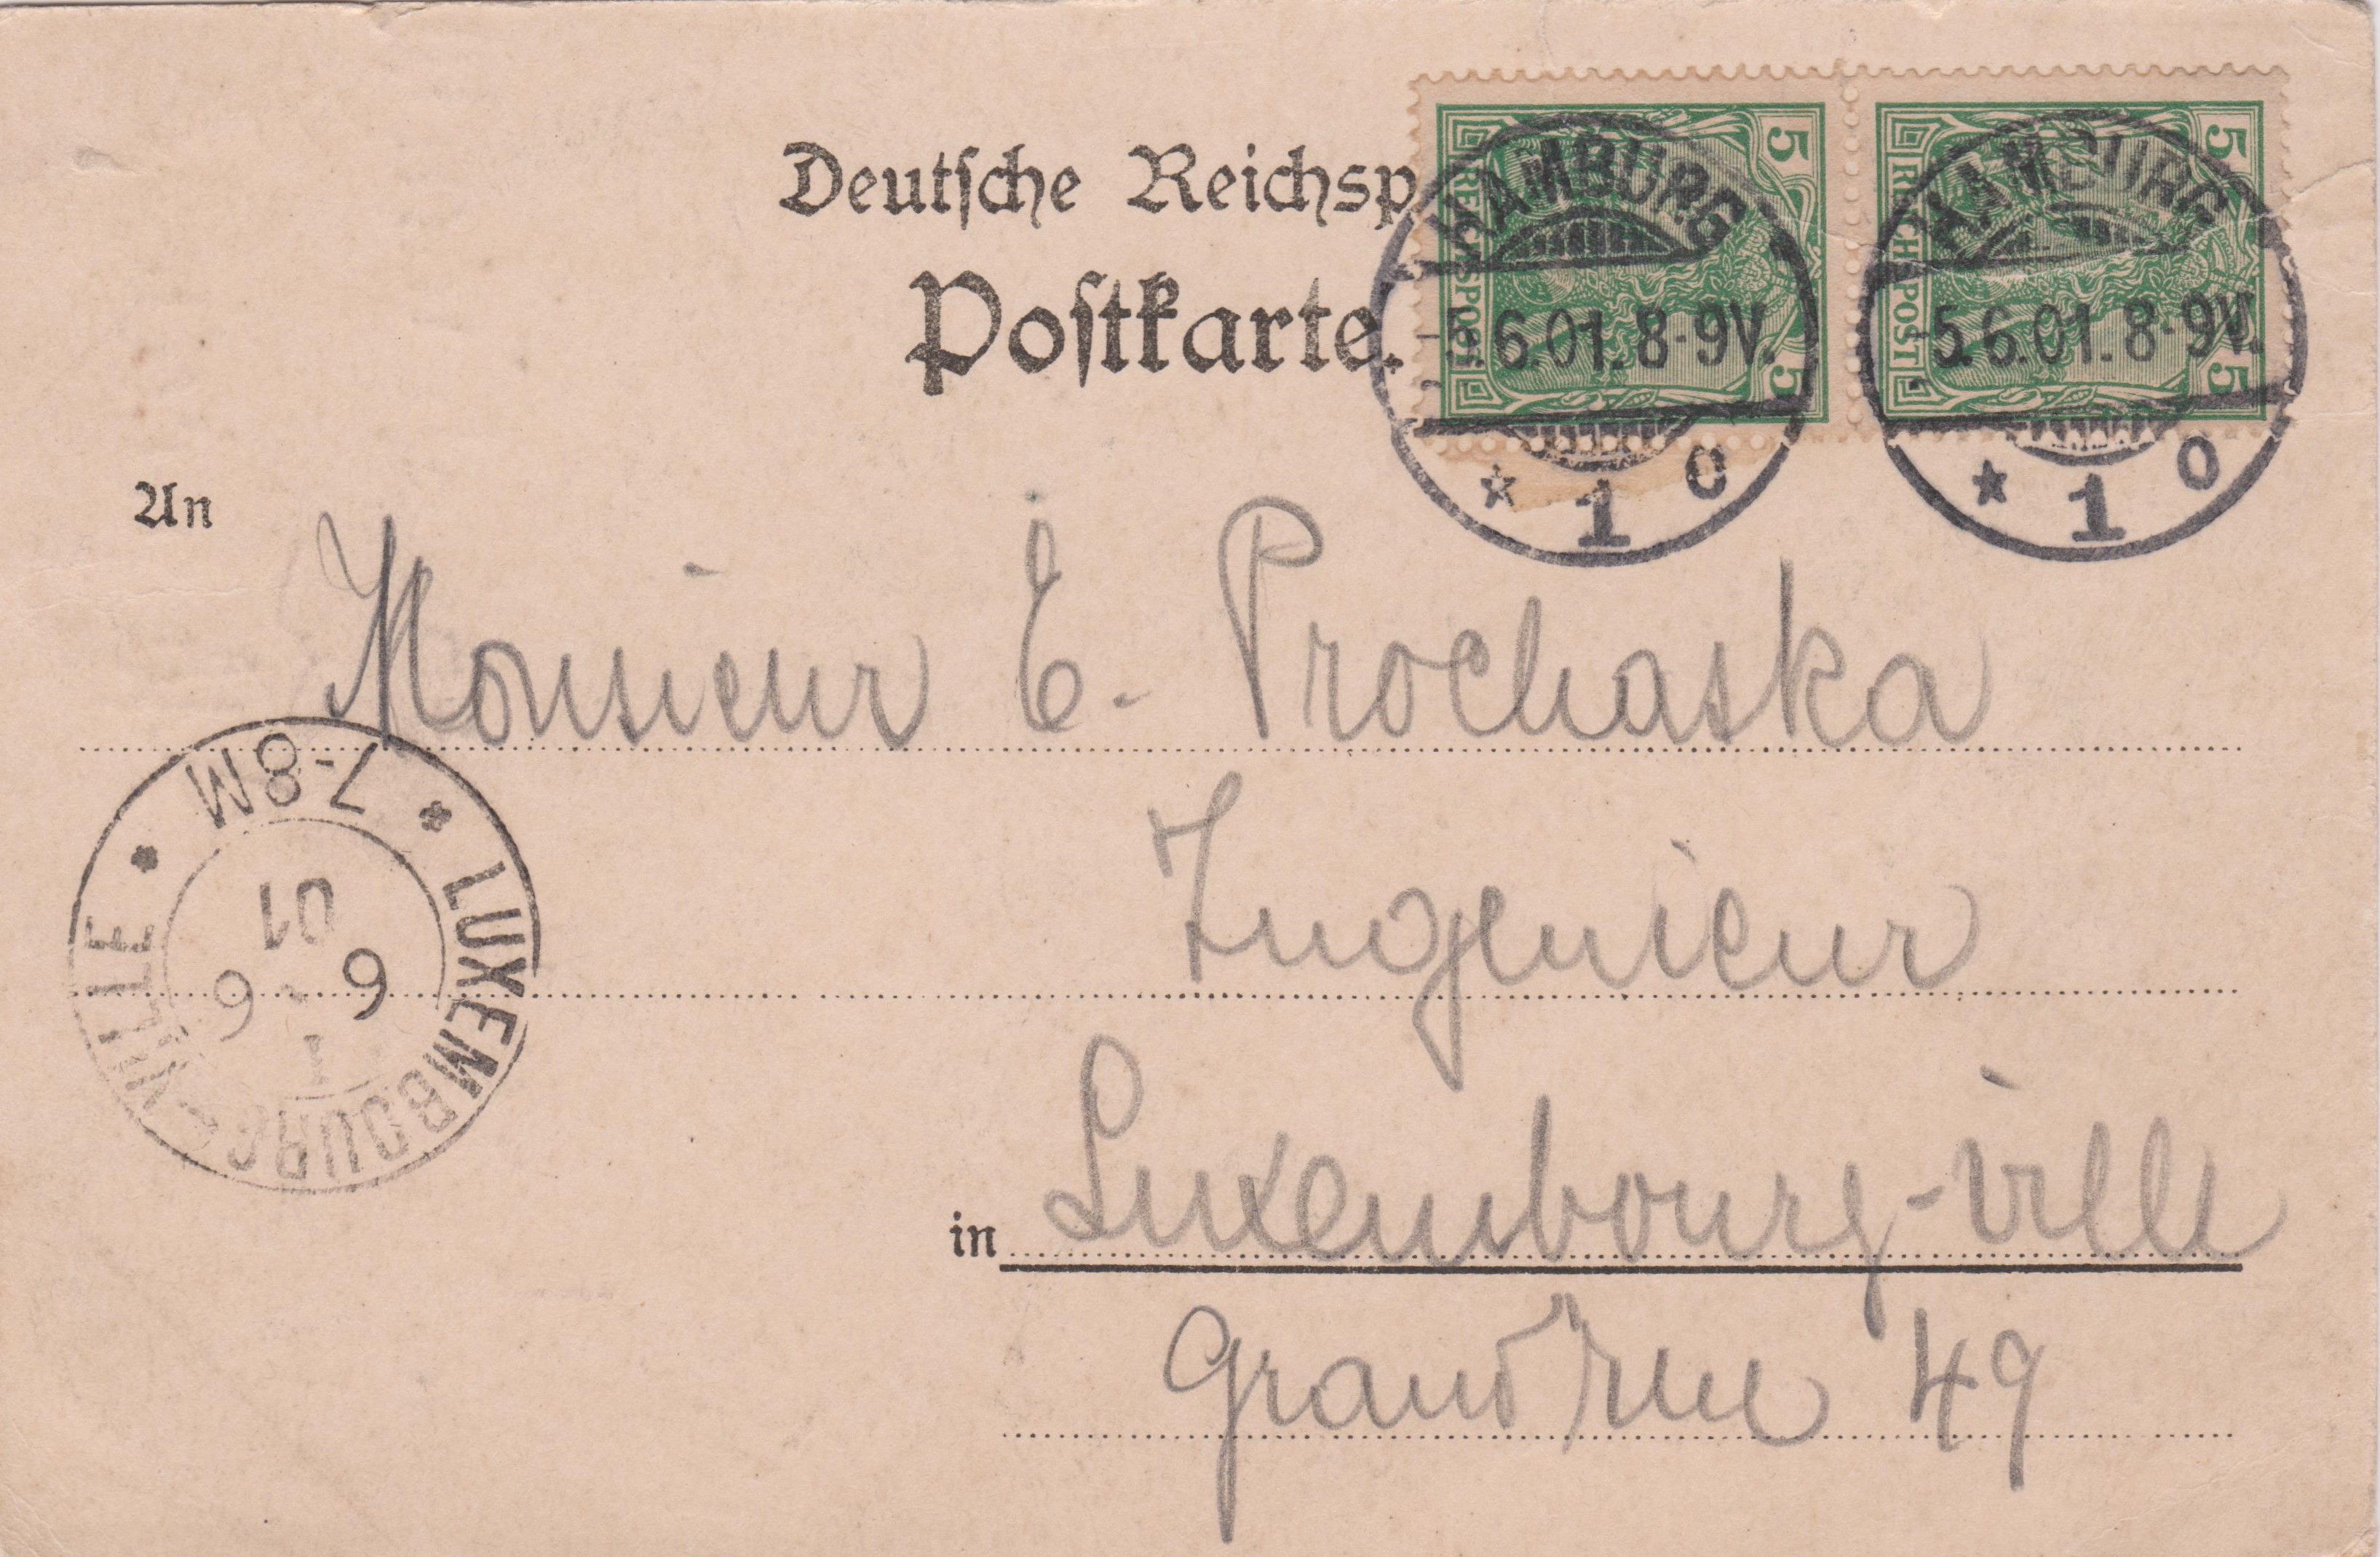 Deutsche Reichsp
Postkarte.
REICHSPOST
5
5
REICHSPOST
5
5
HAMBURG
-5.6.01.8-9V.
* 1 o
HAMBURG
-5.6.01.8-9V.
* 1 o
An
Monsieur E. Prochaska
Ingenieur
in Luxembourg-ville
Grand'rue 49
* LUXEMBOURG-VILLE *
7-8M
6 - 6
01
1